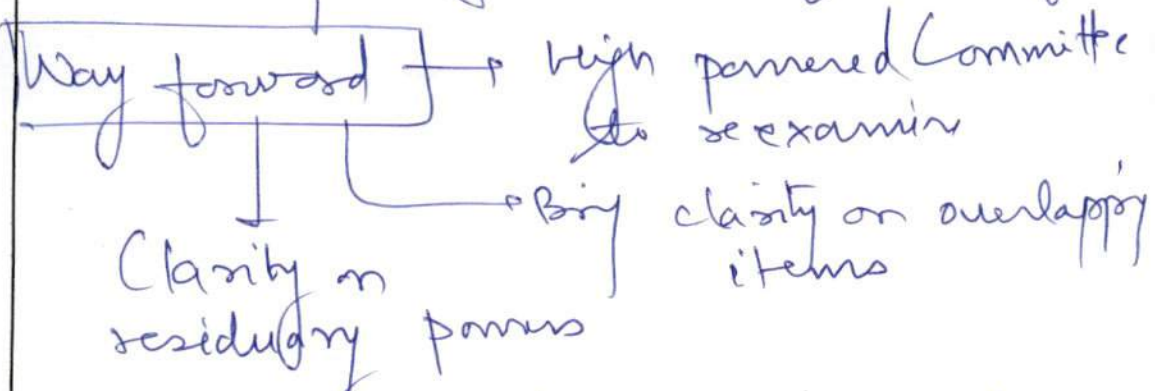 Way forward → High powered Committe
to reexamin
→ Bring clarity on overlapping
items
Clarity on
residuary powers